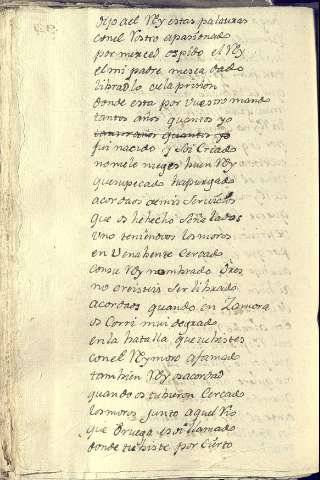 dijo al Rey estas palauras
con el rostro apasionado
por merced os pido el Rey
el mi padre me sea dado
libradlo de la prision
donde esta por vuestro mando
tantos años quantos yo
tantos años quantos yo
fui nacido y soi criado
no me le niegues buen Rey
que su pecado ha purgado
acordaos de mis servicios
que os he hecho señalados
uno teniendo vos los moros
en Benabente cercado
con su Rey nombrado
no creistis ser librado
acordaos quando en Zamora
os corri mui de grado
en la batalla que ubistes
con el Rey moro afamado
tambien Rey os acordad
quando os tubieron cercado
los moros junto aquel rio
que Oruega es su llamado
donde tubiste por cierto